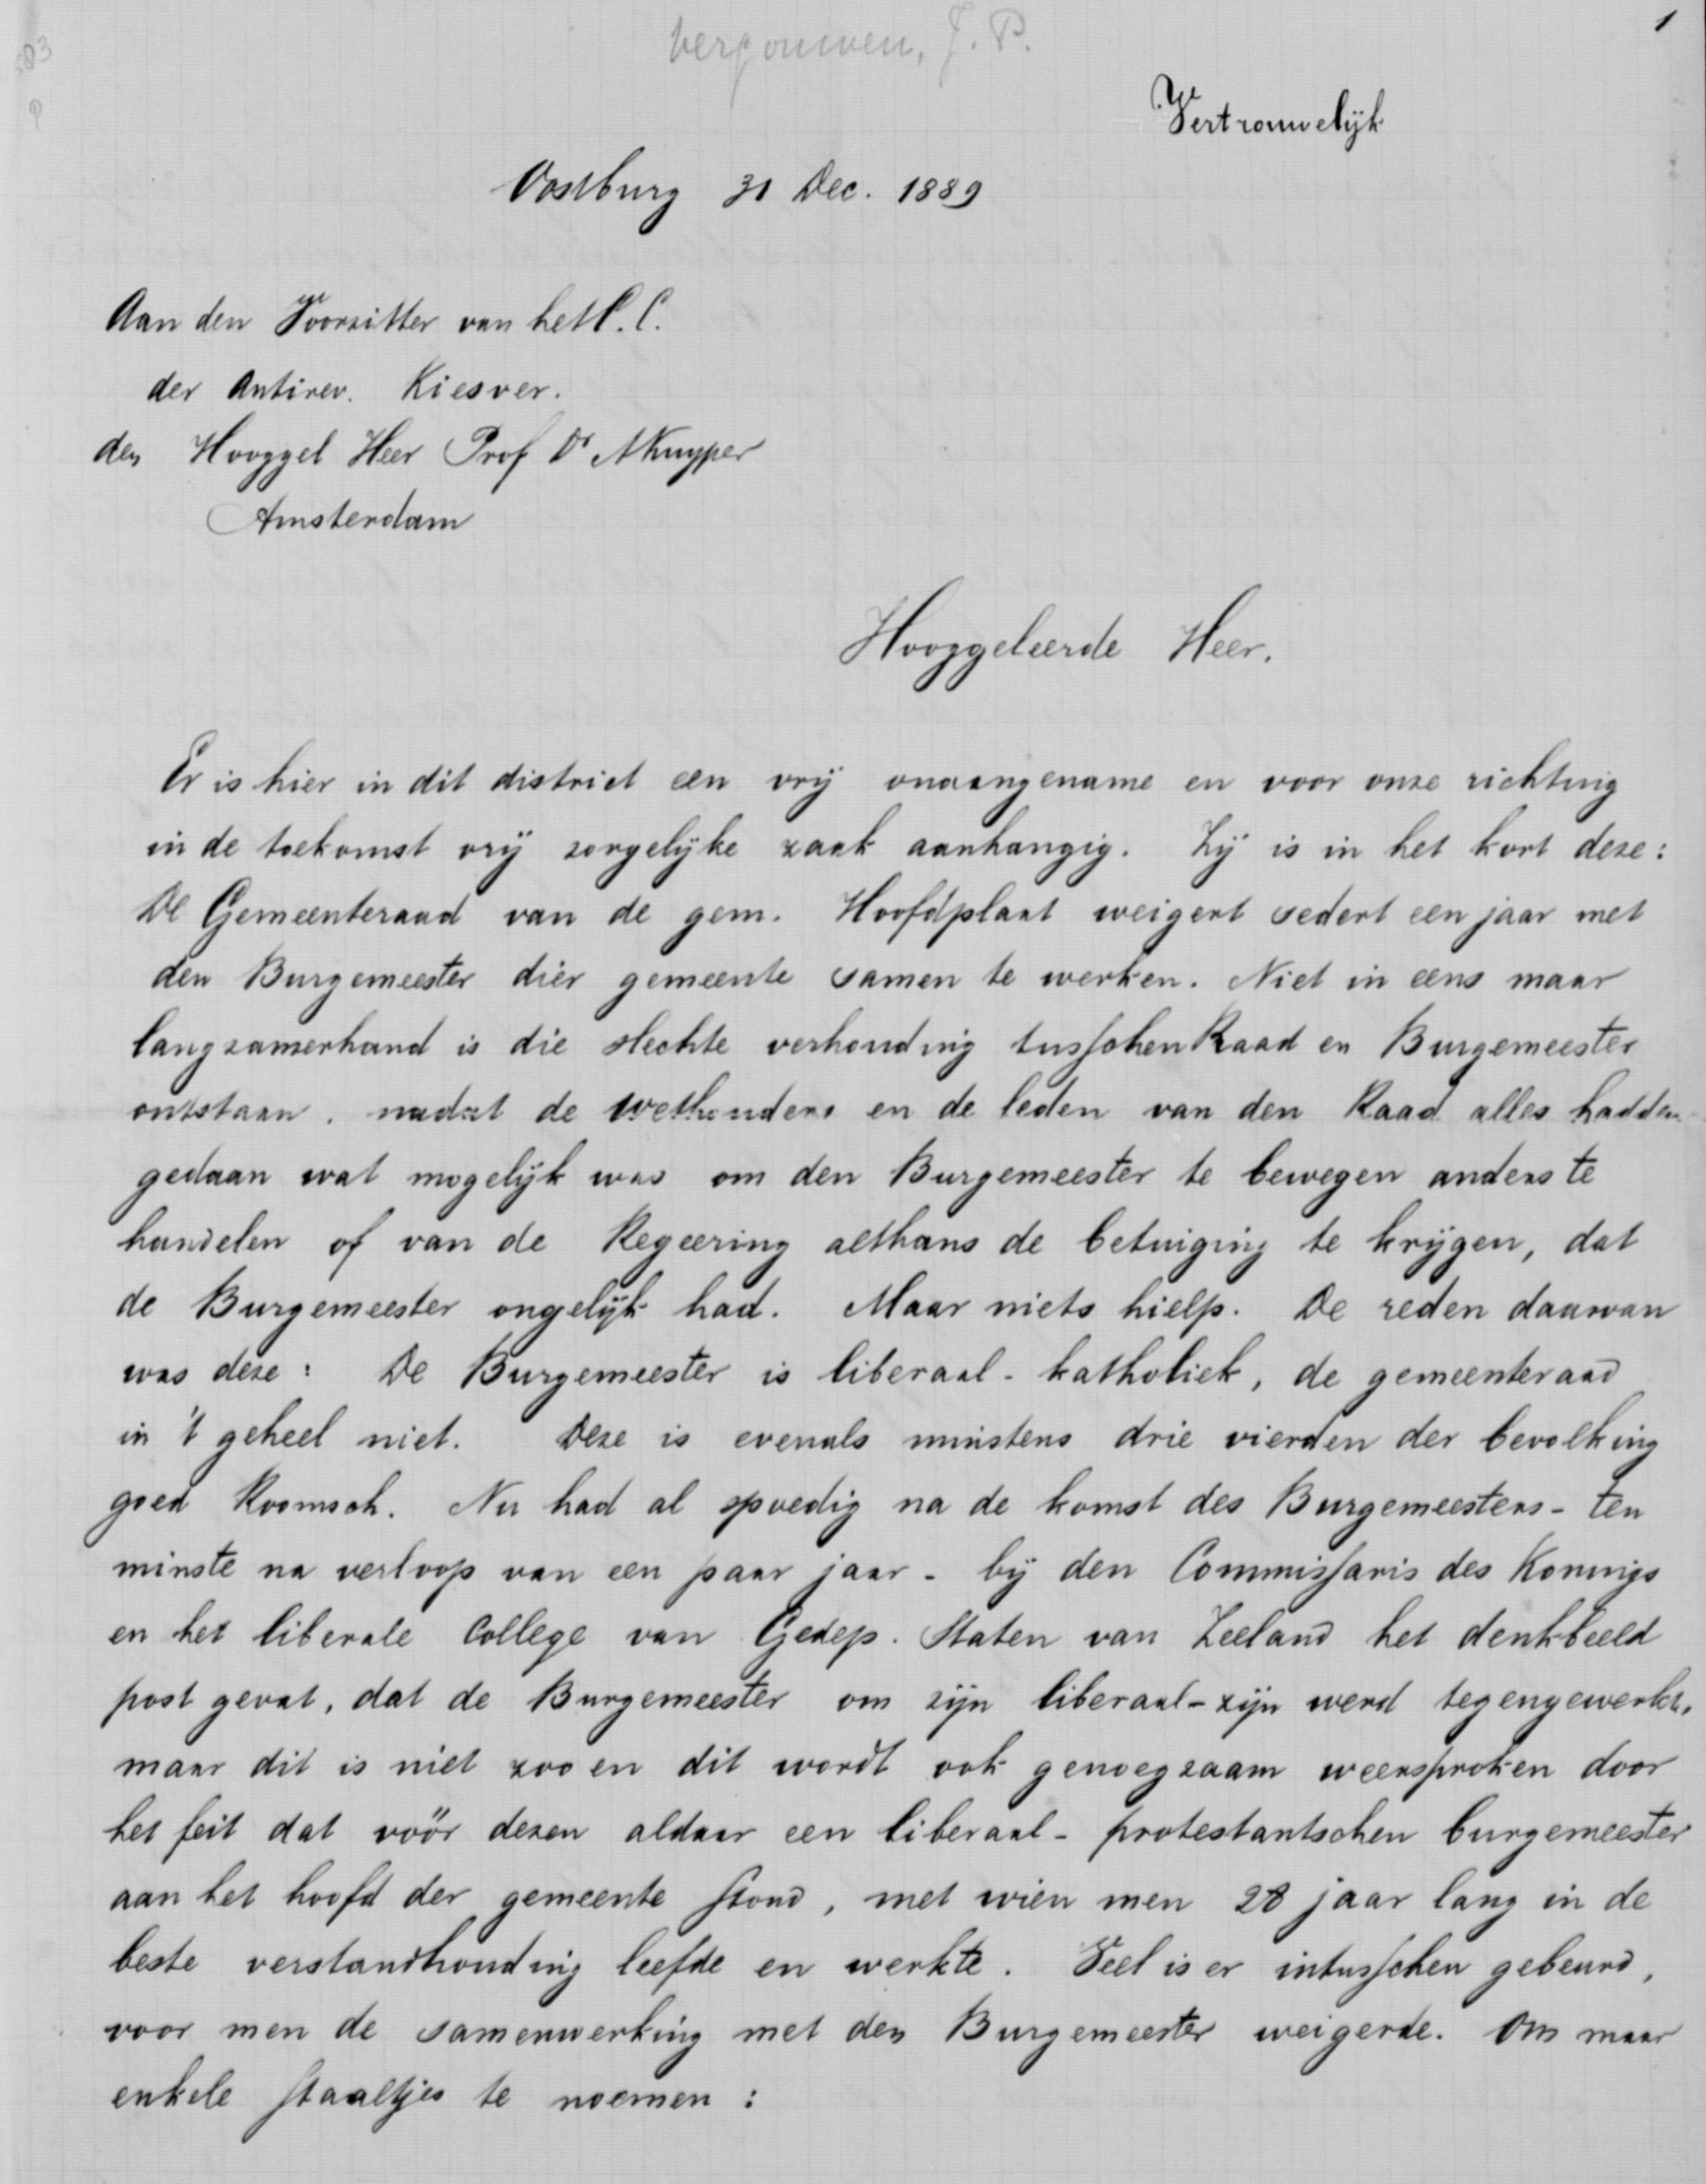 Vergouwen, J. P.
1
Vertrouwelijk
Oostburg 31 Dec. 1889
Aan den Voorzitter van het C. C.
der Antirev. Kiesver.
den Hooggel Heer Prof Dr A Kuyper
Amsterdam
Hooggeleerde Heer.
Er is hier in dit district een vrij onaangename en voor onze richting
in de toekomst vrij zorgelijke zaak aanhangig. Zij is in het kort deze:
De Gemeenteraad van de gem. Hoofdplaat weigert sedert een jaar met
den Burgemeester dier gemeente samen te werken. Niet in eens maar
langzamerhand is die slechte verhouding tusschen Raad en Burgemeester
ontstaan. nadat de wethouders en de leden van den Raad alles hadden
gedaan wat mogelijk was om den Burgemeester te bewegen anders te
handelen of van de Regeering althans de betuiging te krijgen, dat
de Burgemeester ongelijk had. Maar niets hielp. De reden daarvan
was deze: De Burgemeester is liberaal-katholiek, de gemeenteraad
in 't geheel niet. Deze is evenals minstens drie vierden der bevolking
goed Roomsch. Nu had al spoedig na de komst des Burgemeesters - ten
minste na verloop van een paar jaar - bij den Commissaris des Konings
en het liberale College van Gedep. Staten van Zeeland het denkbeeld
post gevat, dat de Burgemeester om zijn liberaal-zijn werd tegengewerkt,
maar dit is niet zoo en dit wordt ook genoegzaam weersproken door
het feit dat vóór dezen aldaar een liberaal-protestantschen burgemeester
aan het hoofd der gemeente stond, met wien men 28 jaar lang in de
beste verstandhouding leefde en werkte. Veel is er intusschen gebeurd,
voor men de samenwerking met den Burgemeester weigerde. Om maar
enkele staaltjes te noemen: